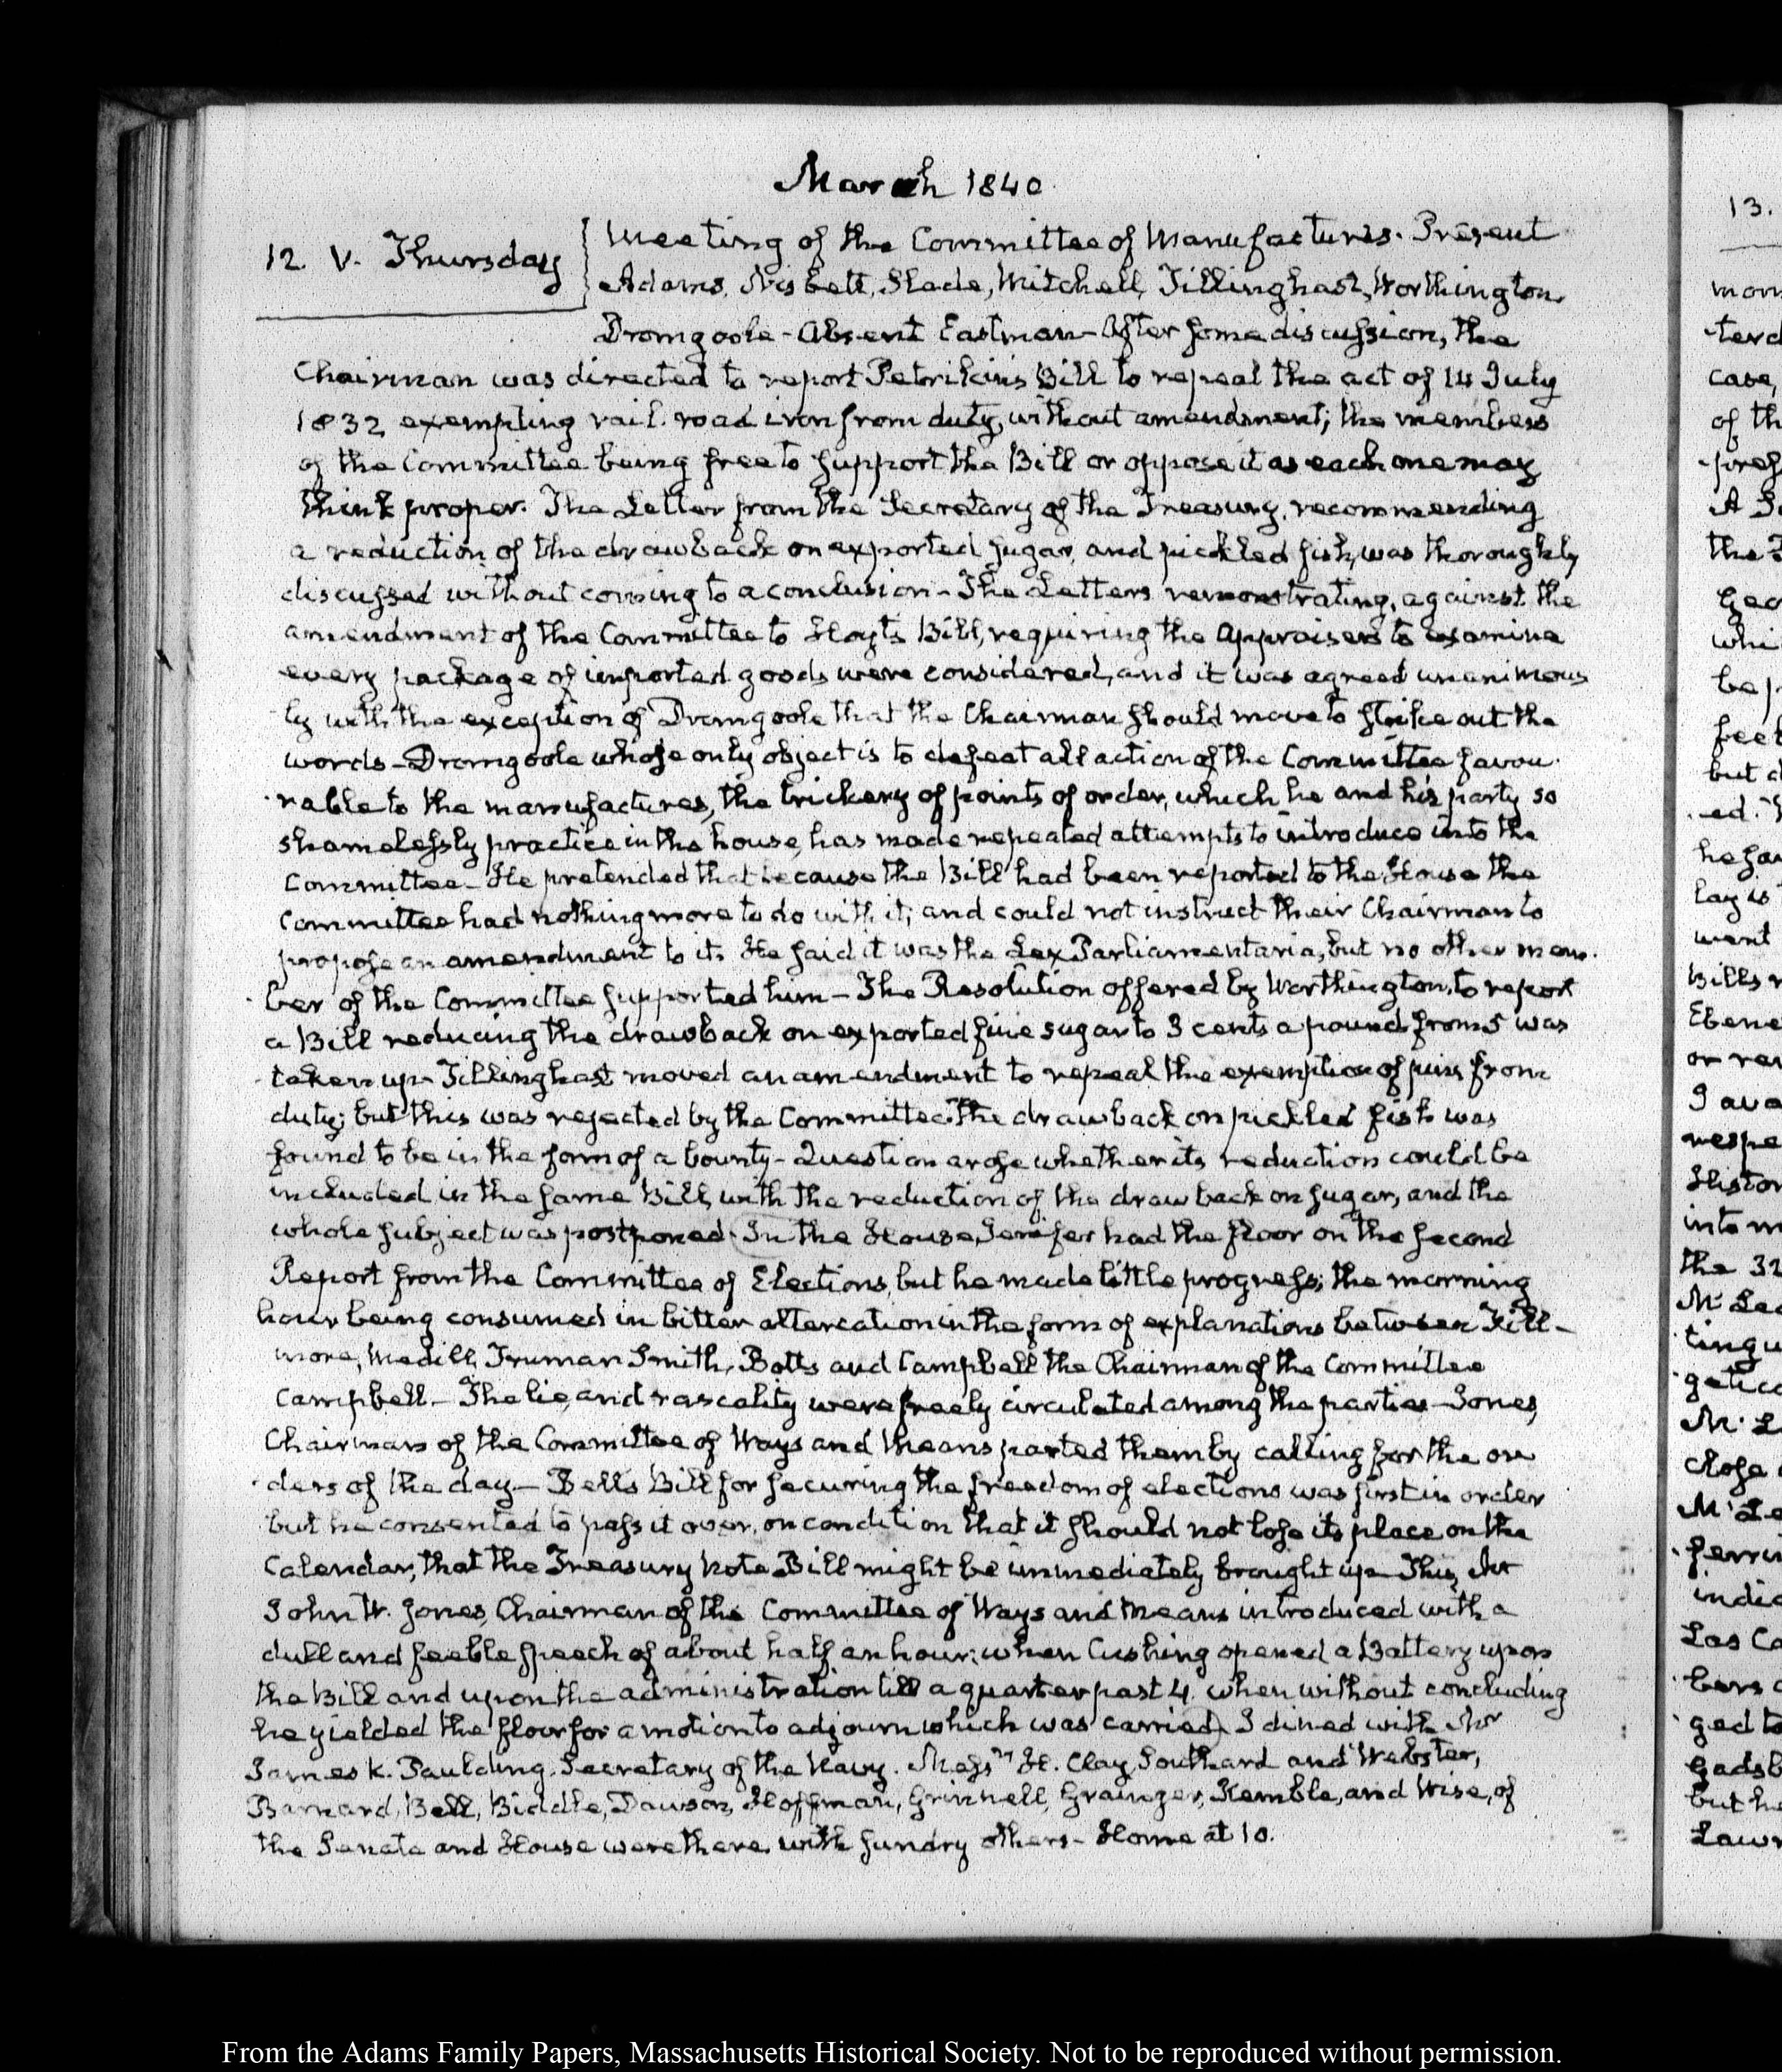 March 1840
12. V. Thursday
Meeting of the Committee of Manufactures. Present
Adams, Nisbett, Slade, Mitchell, Tillinghast, Worthington
Dromgoole - Absent Eastman - After some discussion, the
Chairman was directed to report Petrikin's Bill to repeal the act of 14 July
1832 exempting rail-road iron from duty, without amendment; the members
of the Committee being free to support the Bill or oppose it as each one may
think proper. The Letter from the Secretary of the Treasury, recommending
a reduction of the drawback on exported sugar, and pickled fish, was thoroughly
discussed without coming to a conclusion - The Letters remonstrating, against the
amendment of the Committee to Hoyt's Bill, requiring the Appraisers to examine
every package of imported goods were considered, and it was agreed unanimous
ly with the exception of Dromgoole that the Chairman should move to strike out the
words - Dromgoole whose only object is to defeat all action of the Committee favou-
rable to the manufactures, the trickery of points of order, which he and his party so
shamelessly practice in the house, has made repeated attempts to introduce into the
Committee - He pretended that because the Bill had been reported to the House the
Committee had nothing more to do with it; and could not instruct their Chairman to
propose an amendment to it. He said it was the Lex Parliamentaria, but no other mem-
ber of the Committee supported him - The Resolution offered by Worthington, to report
a Bill reducing the drawback on exported fine sugar to 3 cents a pound from 5 was
taken up - Tillinghast moved an amendment to repeal the exemption of pins from
duty; but this was rejected by the Committee. The drawback on pickled fish was
found to be in the form of a bounty - Question arose whether its reduction could be
included in the same Bill, with the reduction of the drawback on sugar, and the
whole subject was postponed. In the House, Jenifer had the floor on the second
Report from the Committee of Elections, but he made little progress; the morning
hour being consumed in bitter altercation in the form of explanations between Fill-
more, Medill, Truman Smith, Botts and Campbell the Chairman of the Committee
Campbell. - The lie, and rascality were freely circulated among the parties - Jones,
Chairman of the Committee of Ways and Means parted them by calling for the or
ders of the day - Bell's Bill for securing the freedom of elections was first in order
but he consented to pass it over, on condition that it should not lose its place on the
Calendar, that the Treasury Note Bill might be immediately brought up - This, Mr
John W. Jones, Chairman of the Committee of Ways and Means introduced with a
dull and feeble speech of about half an hour; when Cushing opened a Battery upon
the Bill and upon the administration till a quarter past 4. when without concluding
he yielded the floor for a motion to adjourn which was carried. I dined with Mr
James K. Paulding. Secretary of the Navy. Messrs H. Clay, Southard and Webster,
Barnard, Bell, Biddle, Dawson, Hoffman, Grinnell, Granger, Kemble, and Wise, of
the Senate and House were there, with sundry others - Home at 10.
13.
From the Adams Family Papers, Massachusetts Historical Society. Not to be reproduced without permission.